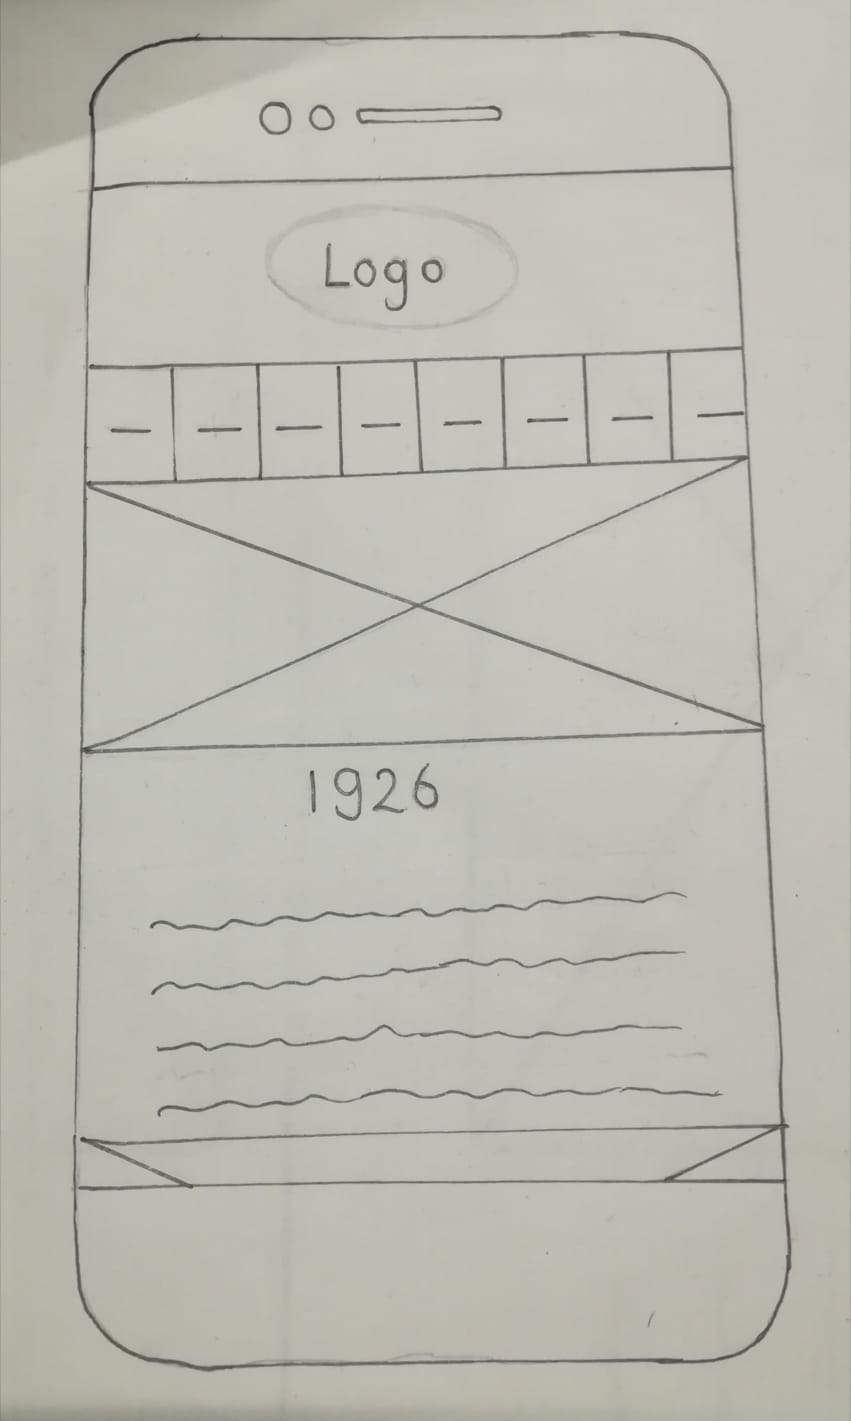 Logo
1926